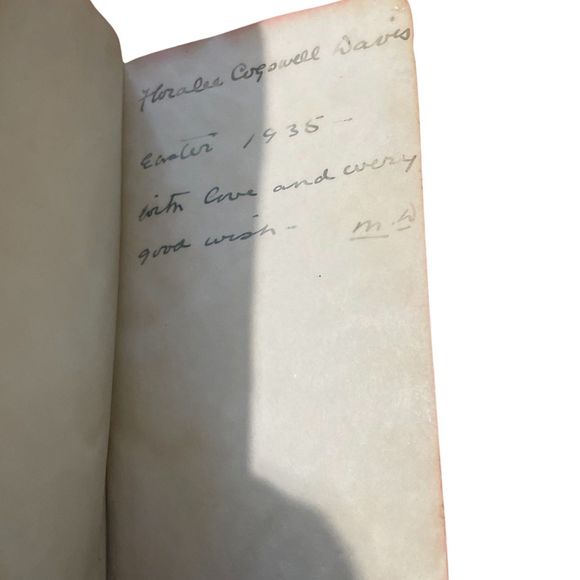 Floralee Cogswell Davis
Easter 1935 -
with love and every
good wish - M.D